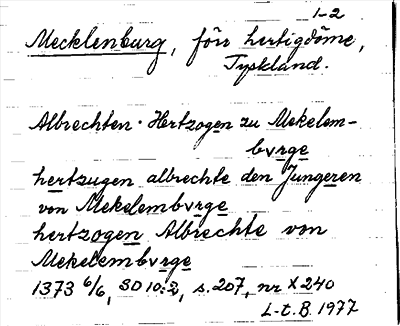 1-2
Mecklenburg, förr hertigdöme,
Tyskland.
Albrechten · Hertzogen zu Mekelem-
bvrge
hertzugen albrechte den Jungeren
von Mekelembvrge
hertzogen Albrechte von
Mekelembvrge
1373 6/6, SD 10:2, s. 207, nr X 240
L-t. B. 1977